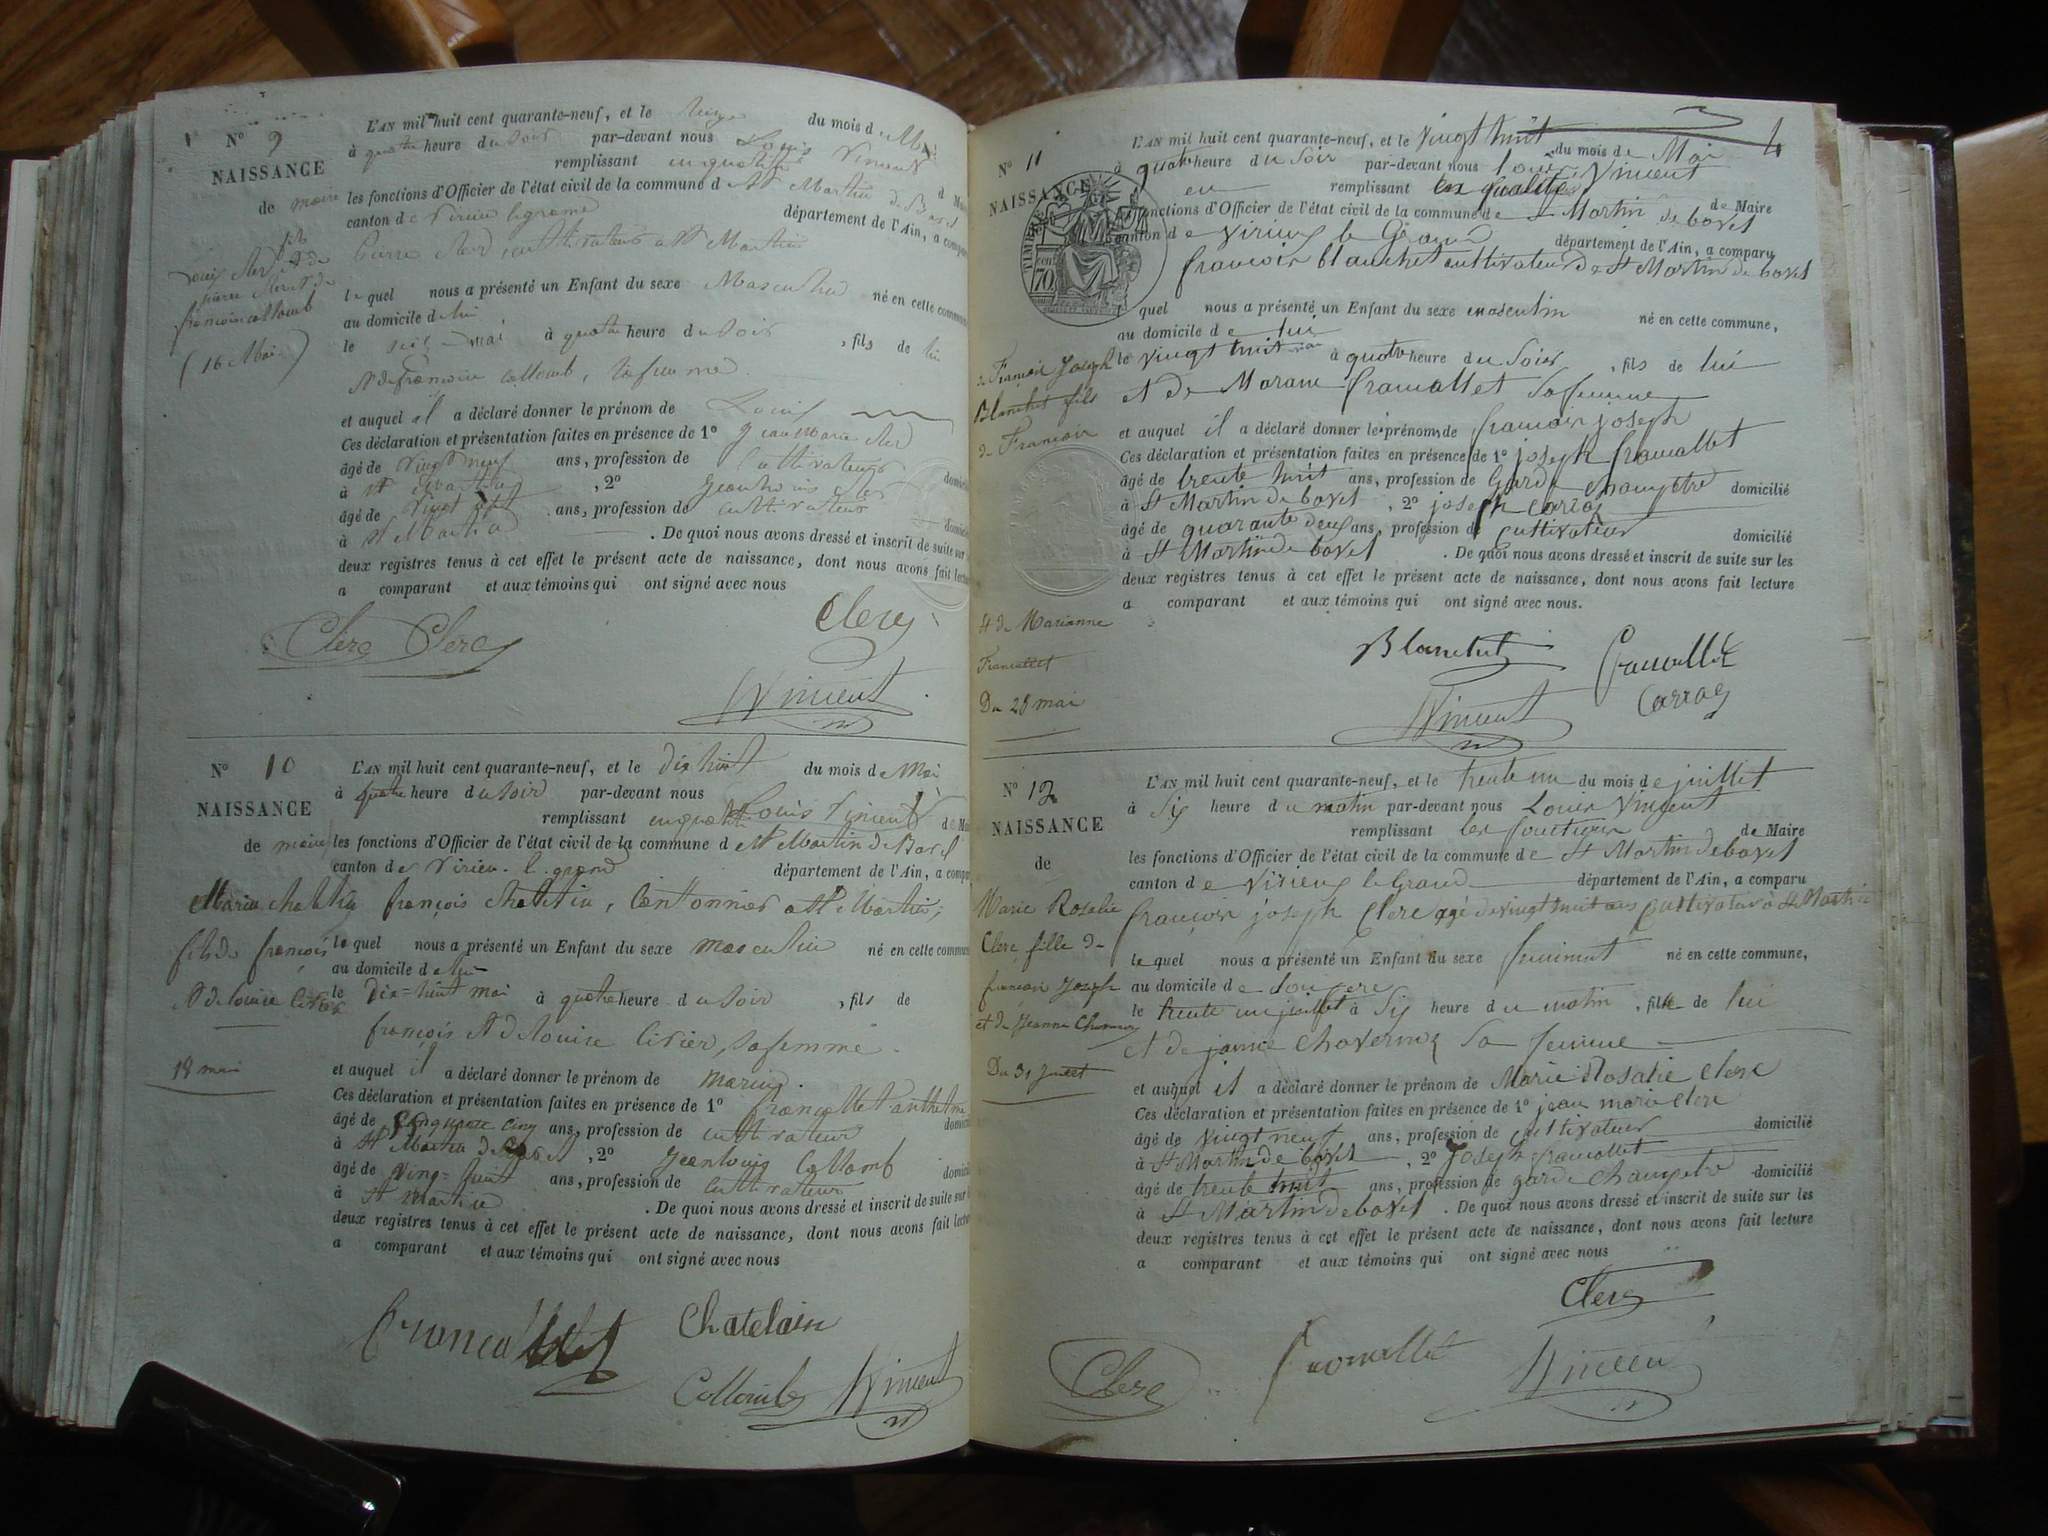 N° 9
NAISSANCE
de maire
fils
pierre
françoise collomb
(16 Mai)
L'AN mil huit cent quarante-neuf, et le seize du mois de Mai
à quatre heure du soir par-devant nous Louis Vincent
remplissant en qualité d Maire
les fonctions d'Officier de l'état civil de la commune d St Martin de Bavel
canton de Virieu le grand département de l'Ain, a comparu
Pierre Clerc, cultivateur a St Martin
lequel nous a présenté un Enfant du sexe Masculin né en cette commune
au domicile de lui
le seize mai à quatre heure du soir, fils de lui
et de françoise collomb, sa femme
et auquel il a déclaré donner le prénom de Louis
Ces déclaration et présentation faites en présence de 1° Jean Marie Clerc
âgé de vingt neuf ans, profession de Cultivateur
à St Martin, 2° domicilié
âgé de vingt sept ans, profession de cultivateur
à St Martin. De quoi nous avons dressé et inscrit de suite sur
deux registres tenus à cet effet le présent acte de naissance, dont nous avons fait lecture
a comparant et aux témoins qui ont signé avec nous
Clerc
Clerc Clerc
Vincent
N° 10
NAISSANCE
de maire
fils de françois
et de louise
18 mai
L'AN mil huit cent quarante-neuf, et le dix huit du mois de Mai
à quatre heure du soir par-devant nous
Louis Vincent
remplissant en qualité d Maire
les fonctions d'Officier de l'état civil de la commune d St Martin de Bavel
canton de Virieu le grand département de l'Ain, a comparu
françois, Cantonnier a St Martin,
lequel nous a présenté un Enfant du sexe masculin né en cette commune
au domicile de lui
le Dix=huit mai à quatre heure du soir, fils de
françois et de louise, sa femme
et auquel il a déclaré donner le prénom de
Ces déclaration et présentation faites en présence de 1° francallet anthelme
âgé de cinquante cinq ans, profession de cultivateur
à St Martin de Bavel, 2° Jean louis Collomb
âgé de ving=huit ans, profession de Cultivateur
à St Martin. De quoi nous avons dressé et inscrit de suite sur
deux registres tenus à cet effet le présent acte de naissance, dont nous avons fait lecture
a comparant et aux témoins qui ont signé avec nous
Francallet Chatelain
Collomb Vincent
4
N° 11
NAISSANCE
TIMBRE
70
de François Joseph
Blanchet fils
de François
et de Marianne
Francallet
Du 28 mai
L'AN mil huit cent quarante-neuf, et le vingt huit du mois de Mai
à quatre heure du Soir par-devant nous louis Vincent
en remplissant en qualité de Maire
les fonctions d'Officier de l'état civil de la commune de St Martin de bavel
canton de Virieu le Grand département de l'Ain, a comparu
françois blanchet cultivateur de St Martin de bavel
lequel nous a présenté un Enfant du sexe masculin né en cette commune,
au domicile de lui
le vingt huit mai à quatre heure du Soir, fils de lui
et de francallet sa femme
et auquel il a déclaré donner le prénom de françois joseph
Ces déclaration et présentation faites en présence de 1° joseph francallet
âgé de trente huit ans, profession de Garde champêtre domicilié
à St Martin de bavel, 2° joseph
âgé de quarante deux ans, profession de cultivateur domicilié
à St Martin de bavel. De quoi nous avons dressé et inscrit de suite sur les
deux registres tenus à cet effet le présent acte de naissance, dont nous avons fait lecture
a comparant et aux témoins qui ont signé avec nous.
Blanchet Francallet
Vincent
N° 12
NAISSANCE
de
Marie Rosalie
Clerc fille de
françois Joseph
et de Jeanne
Du 31 Juillet
L'AN mil huit cent quarante-neuf, et le trente un du mois de juillet
à Six heure du matin par-devant nous Louis Vincent
remplissant les fonctions de Maire
les fonctions d'Officier de l'état civil de la commune de St Martin de bavel
canton de Virieu le Grand département de l'Ain, a comparu
françois joseph Clerc agé de vingt huit ans Cultivateur à St Martin
lequel nous a présenté un Enfant du sexe né en cette commune,
au domicile de
le trente un juillet à Six heure du matin, fille de lui
et de sa femme
et auquel il a déclaré donner le prénom de Marie Rosalie Clerc
Ces déclaration et présentation faites en présence de 1° jean marie Clerc
âgé de vingt neuf ans, profession de cultivateur domicilié
à St Martin de bavel, 2° Joseph francallet
âgé de trente huit ans, profession de garde champêtre domicilié
à St Martin de bavel. De quoi nous avons dressé et inscrit de suite sur les
deux registres tenus à cet effet le présent acte de naissance, dont nous avons fait lecture
a comparant et aux témoins qui ont signé avec nous
Clerc
Clerc francallet Vincent